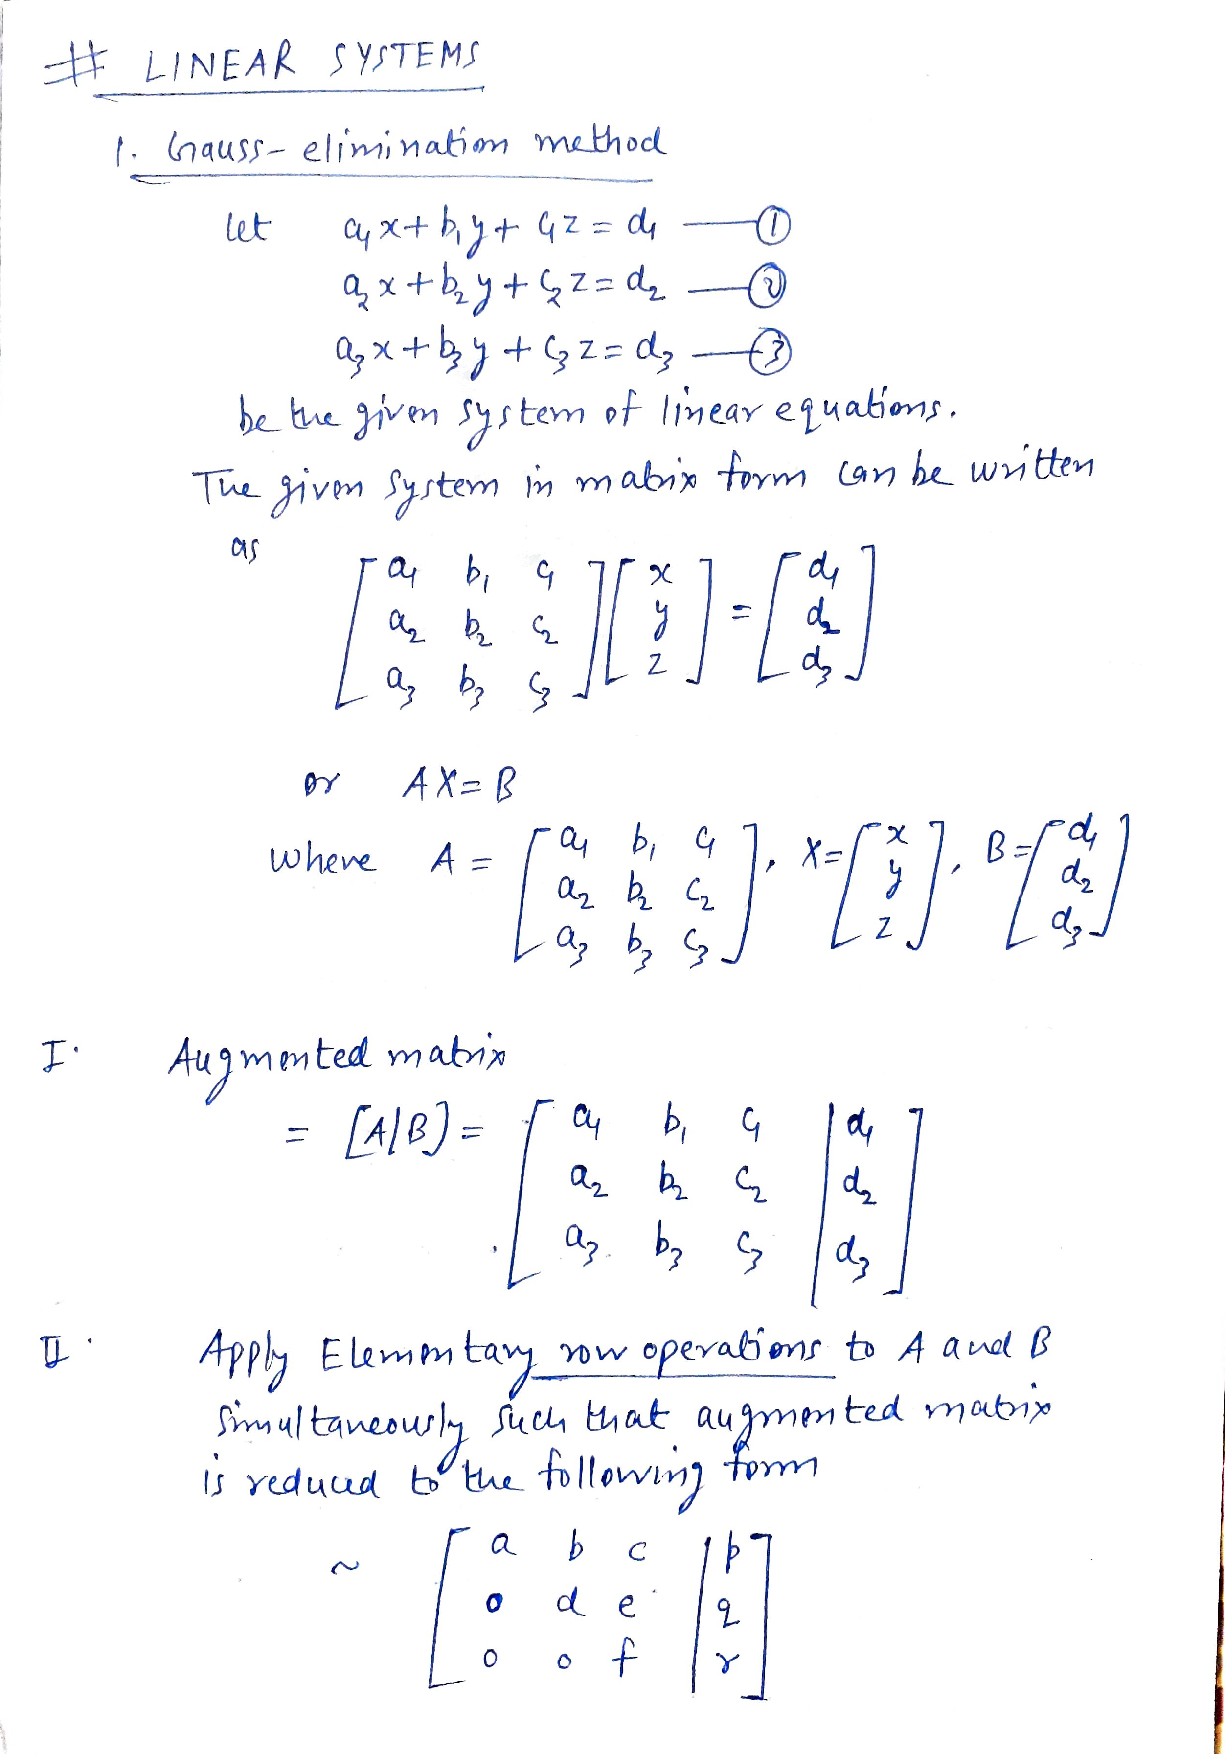 # LINEAR SYSTEMS
1. Gauss-elimination method
let a₁x + b₁y + c₁z = d₁ —①
a₂x + b₂y + c₂z = d₂ —②
a₃x + b₃y + c₃z = d₃ —③
be the given system of linear equations.
The given system in matrix form can be written
as
[ a₁ b₁ c₁ ] [ x ] = [ d₁ ]
[ a₂ b₂ c₂ ] [ y ] = [ d₂ ]
[ a₃ b₃ c₃ ] [ z ] = [ d₃ ]
or AX = B
where A = [ a₁ b₁ c₁ ], X = [ x ], B = [ d₁ ]
[ a₂ b₂ c₂ ] [ y ] [ d₂ ]
[ a₃ b₃ c₃ ] [ z ] [ d₃ ]
I. Augmented matrix
= [A|B] = [ a₁ b₁ c₁ | d₁ ]
[ a₂ b₂ c₂ | d₂ ]
[ a₃ b₃ c₃ | d₃ ]
II. Apply Elementary row operations to A and B
simultaneously such that augmented matrix
is reduced to the following form
~ [ a b c | p ]
[ 0 d e | q ]
[ 0 0 f | r ]